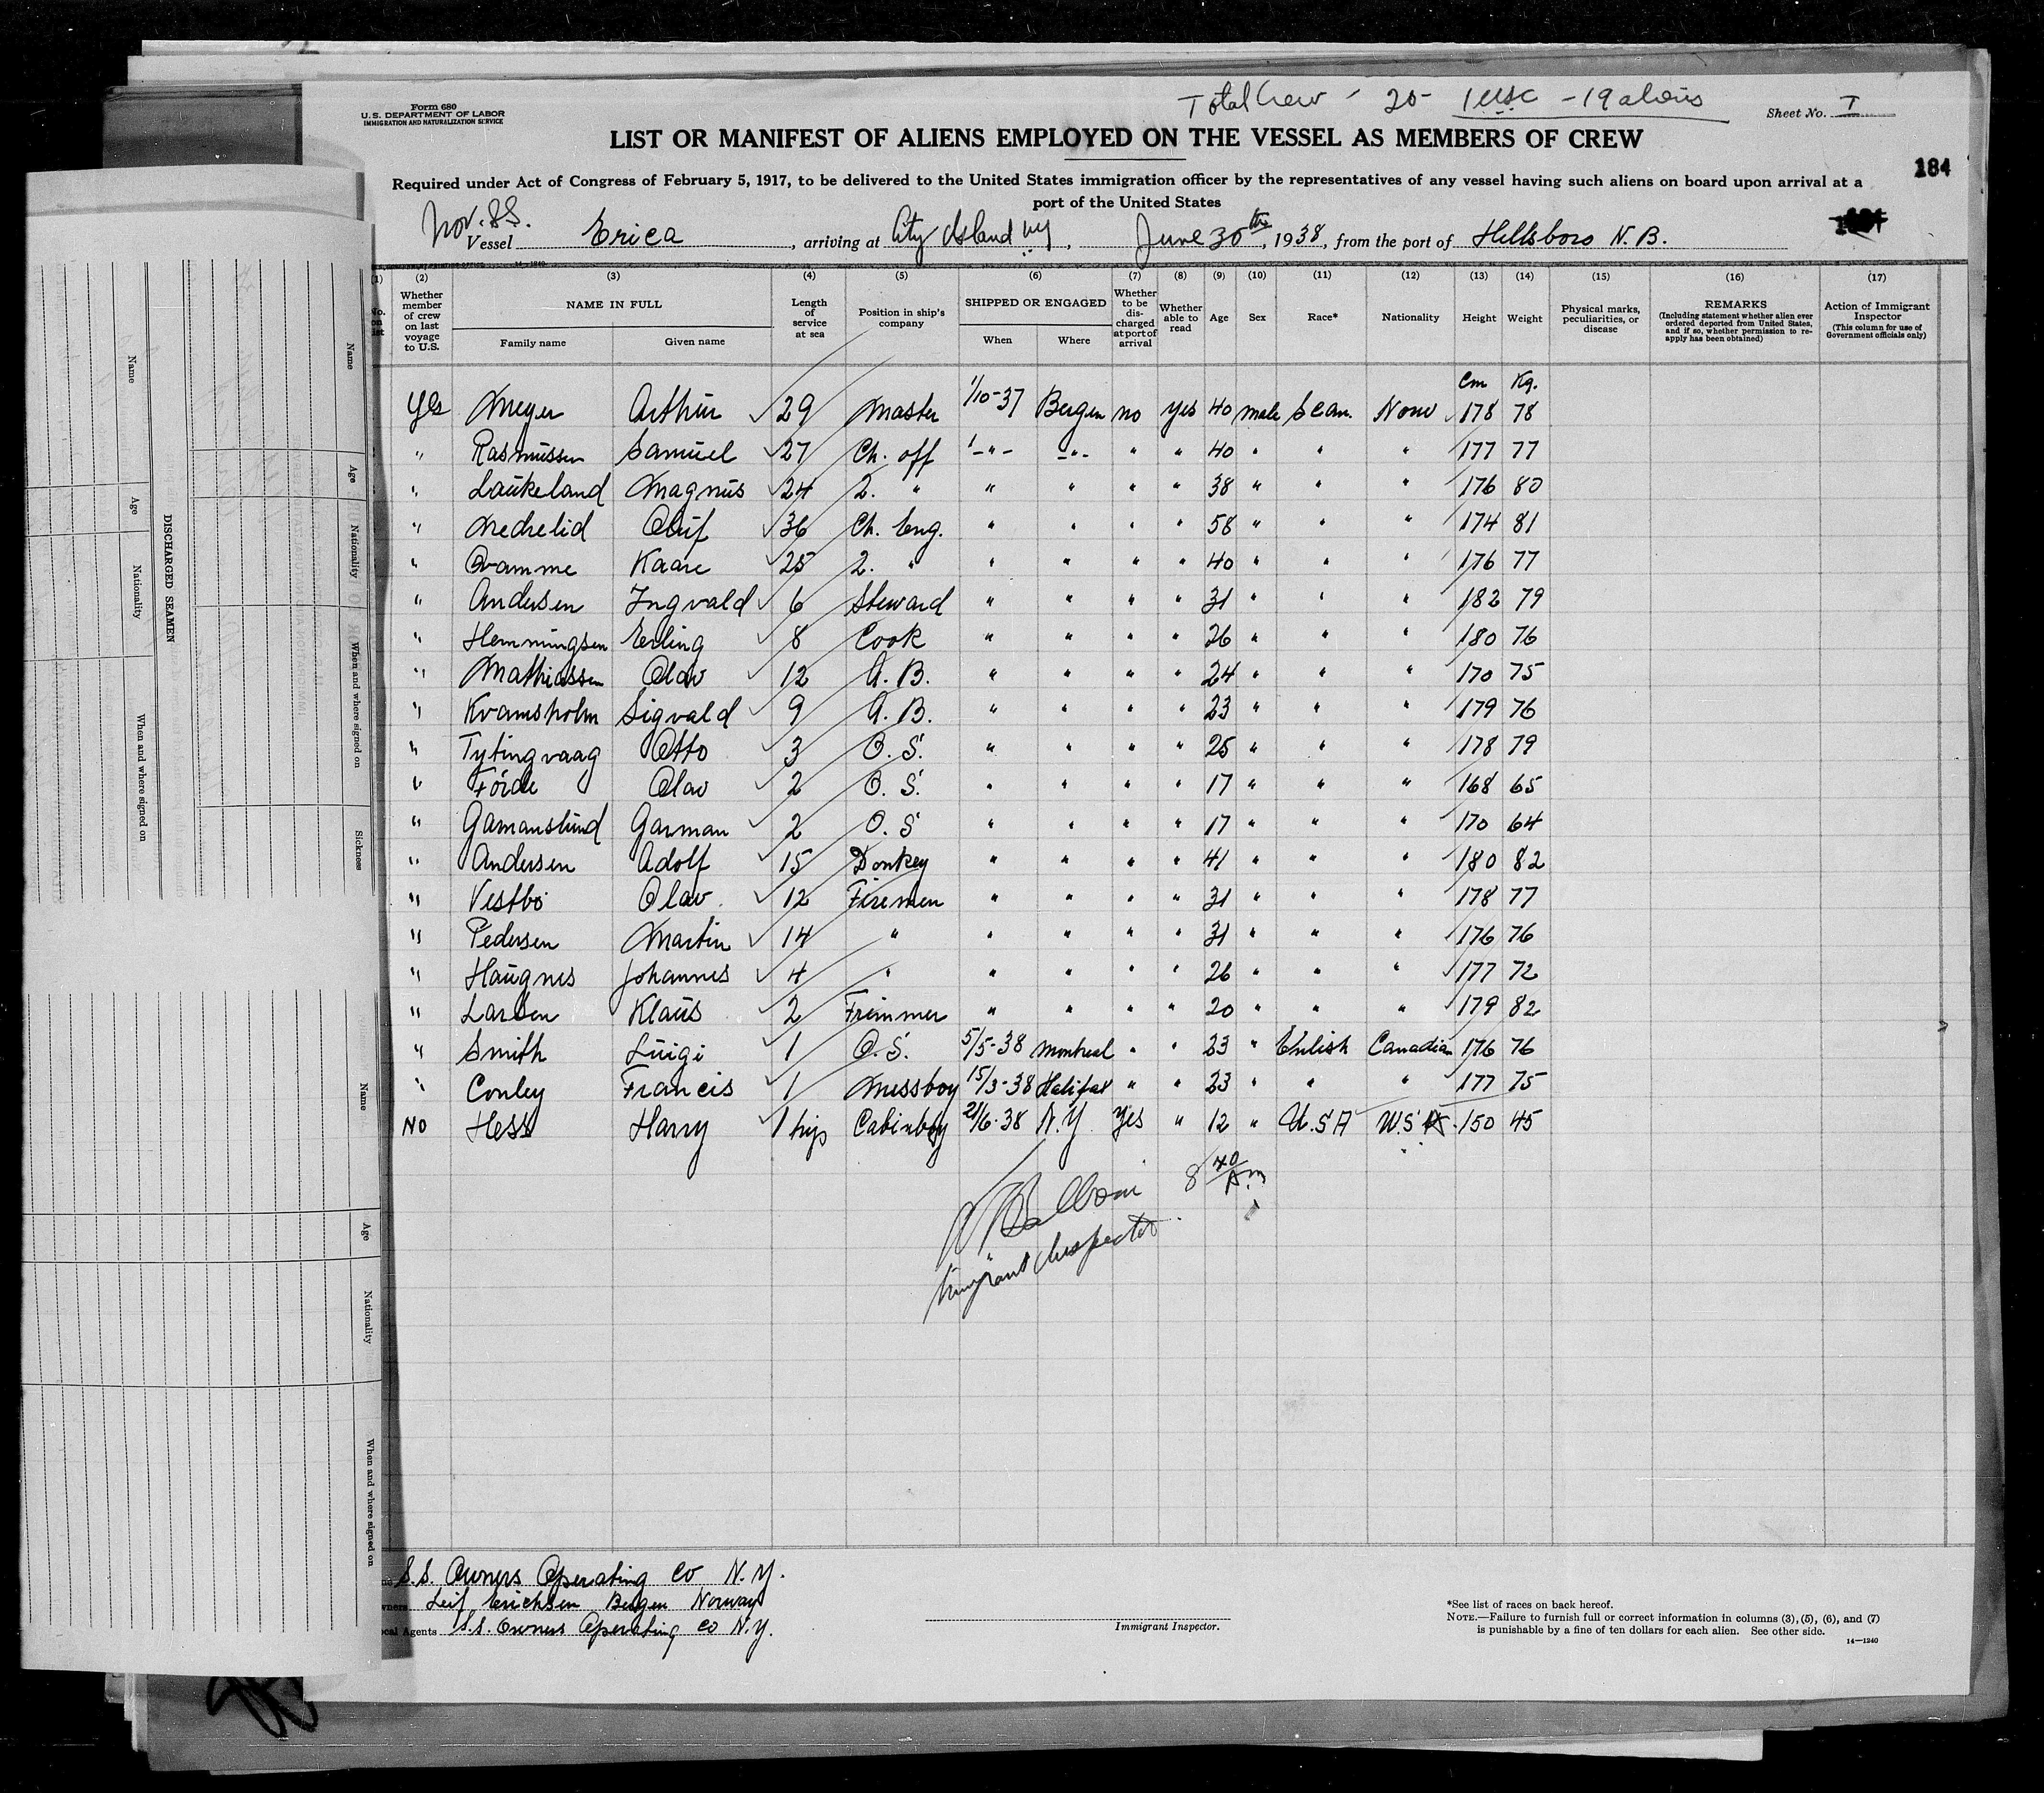 Total Crew - 20 - 1 USC - 19 aliens
Form 680
U.S. DEPARTMENT OF LABOR
IMMIGRATION AND NATURALIZATION SERVICE
Sheet No. I
LIST OR MANIFEST OF ALIENS EMPLOYED ON THE VESSEL AS MEMBERS OF CREW
184
Required under Act of Congress of February 5, 1917, to be delivered to the United States immigration officer by the representatives of any vessel having such aliens on board upon arrival at a
port of the United States
Nor. SS.
Vessel Erica, arriving at City Island NY, June 30th, 1938, from the port of Hillsboro N.B.
(1) (2) (3) (4) (5) (6) (7) (8) (9) (10) (11) (12) (13) (14) (15) (16) (17)
Whether member of crew on last voyage to U.S. NAME IN FULL Family name Given name Length of service at sea Position in ship's company SHIPPED OR ENGAGED When Where Whether to be discharged at port of arrival Whether able to read Age Sex Race* Nationality Height Weight Physical marks, peculiarities, or disease REMARKS (Including statement whether alien ever ordered deported from United States, and if so, whether permission to reapply has been obtained) Action of Immigrant Inspector (This column for use of Government officials only)
Cm Kg.
Yes Meyer Arthur 29 Master 1/10-37 Bergen no yes 40 male Scan. Norw 178 78
" Rasmussen Samuel 27 Ch. off 1-"- -"- " " 40 " " " 177 77
" Laukeland Magnus 24 2. " " " " " 38 " " " 176 80
" Medrelid Oluf 36 Ch. Eng. " " " " 58 " " " 174 81
" Qvamme Kaare 25 2. " " " " " 40 " " " 176 77
" Andersen Ingvald 6 Steward " " " " 31 " " " 182 79
" Hemmingsen Erling 8 Cook " " " " 26 " " " 180 76
" Mathiassen Olav 12 A.B. " " " " 24 " " " 170 75
" Kvamsholm Sigvald 9 A.B. " " " " 23 " " " 179 76
" Tytingvaag Otto 3 O.S. " " " " 25 " " " 178 79
" Förde Olav 2 O.S. " " " " 17 " " " 168 65
" Gamanslund Garman 2 O.S " " " " 17 " " " 170 64
" Andersen Adolf 15 Donkey " " " " 41 " " " 180 82
" Vestbö Olav 12 Firemen " " " " 31 " " " 178 77
" Pedersen Martin 14 " " " " " 31 " " " 176 76
" Haugnes Johannes 4 " " " " " 26 " " " 177 72
" Larsen Klaus 2 Trimmer " " " " 20 " " " 179 82
" Smith Luigi 1 O.S. 5/5-38 Montreal " " 23 " Enlish Canadian 176 76
" Conley Francis 1 Messboy 15/3-38 Halifax " " 23 " " " 177 75
NO Hess Harry 1 trip Cabinboy 21/6-38 N.Y yes " 12 " U.S A U.S A 150 45
8 40 Am
Immigrant Inspector
S.S. Owners Operating Co N.Y.
Leif Erichsen Bergen Norway
Agents S.S. Owners Operating Co N.Y.
Immigrant Inspector.
*See list of races on back hereof.
NOTE.—Failure to furnish full or correct information in columns (3), (5), (6), and (7)
is punishable by a fine of ten dollars for each alien. See other side.
14—1240
DISCHARGED SEAMEN
Name
Age
Nationality
When and where signed on
Name
Age
Nationality
When and where signed on
Sickness
Name
Age
Nationality
When and where signed on